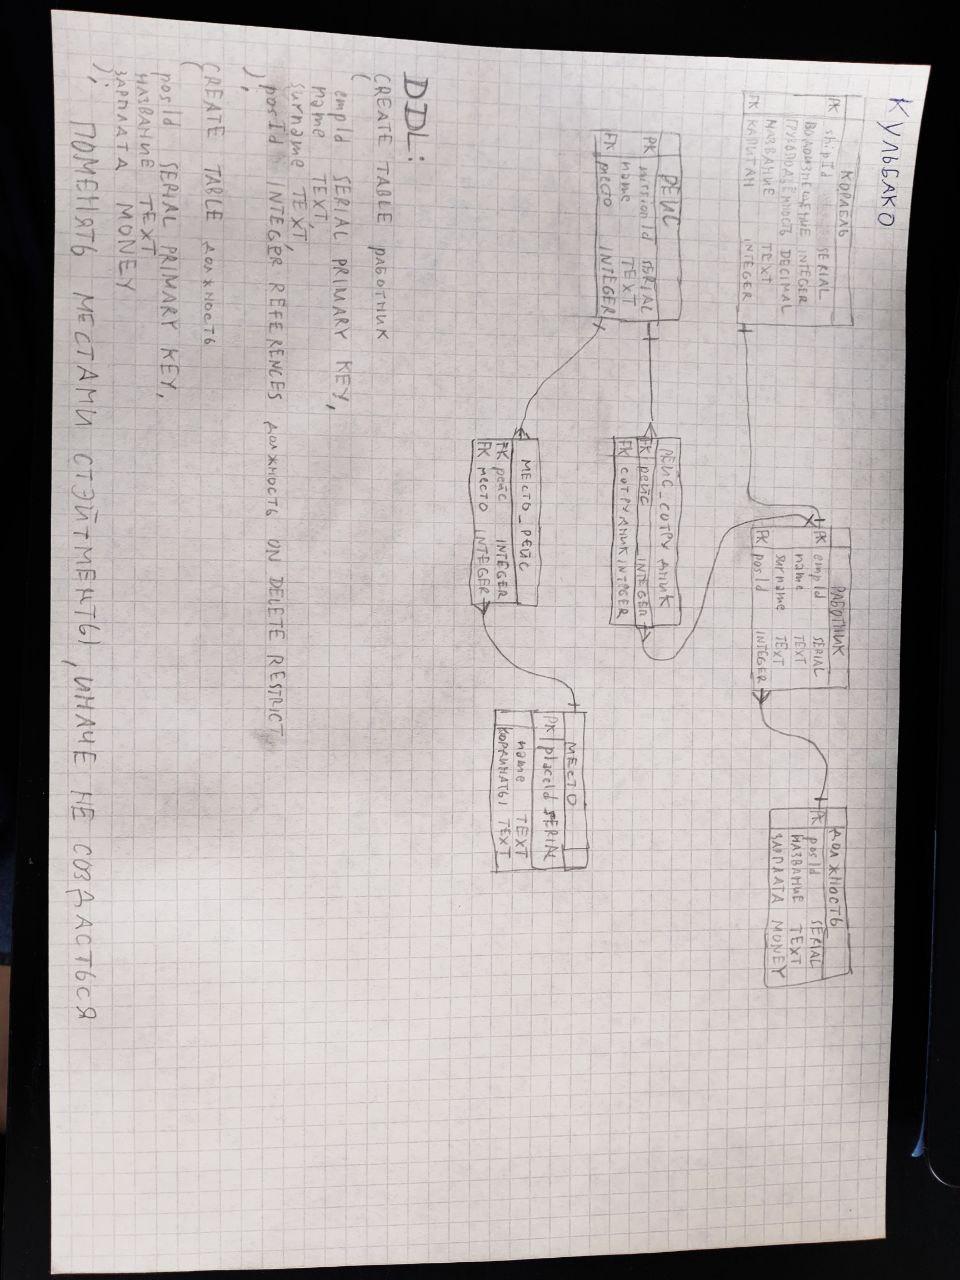 КУЛЬБАКО
КОРАБЛЬ
PK shipId SERIAL
ВОДОИЗМЕЩЕНИЕ INTEGER
ГРУЗОПОДЪЁМНОСТЬ DECIMAL
НАЗВАНИЕ TEXT
FK КАПИТАН INTEGER
РАБОТНИК
PK empId SERIAL
name TEXT
surname TEXT
FK posId INTEGER
ДОЛЖНОСТЬ
PK posId SERIAL
НАЗВАНИЕ TEXT
ЗАРПЛАТА MONEY
РЕЙС
PK missionId SERIAL
name TEXT
FK место INTEGER
РЕЙС_СОТРУДНИК
FK рейс INTEGER
FK СОТРУДНИК INTEGER
МЕСТО_РЕЙС
FK рейс INTEGER
FK место INTEGER
МЕСТО
PK placeId SERIAL
name TEXT
КООРДИНАТЫ TEXT
DDL:
CREATE TABLE РАБОТНИК
(
empId SERIAL PRIMARY KEY,
name TEXT,
surname TEXT,
posId INTEGER REFERENCES ДОЛЖНОСТЬ ON DELETE RESTRICT
);
CREATE TABLE ДОЛЖНОСТЬ
(
posId SERIAL PRIMARY KEY,
НАЗВАНИЕ TEXT
ЗАРПЛАТА MONEY
);
ПОМЕНЯТЬ МЕСТАМИ СТЭЙТМЕНТЫ, ИНАЧЕ НЕ СОЗДАСТЬСЯ